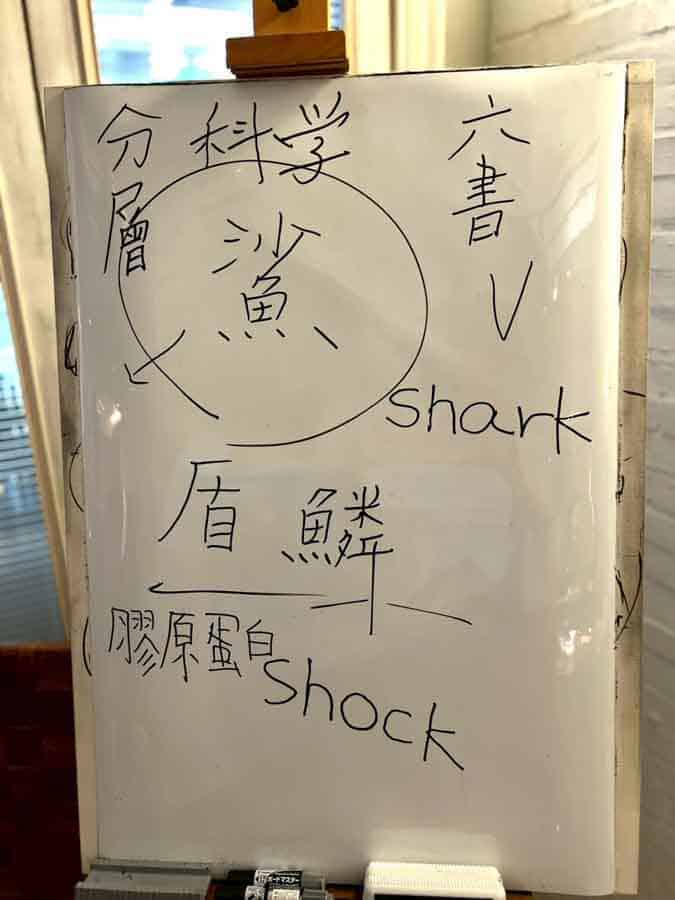 分層
科学
六書
鯊
shark
盾鱗
膠原蛋白
shock
ボードマスター